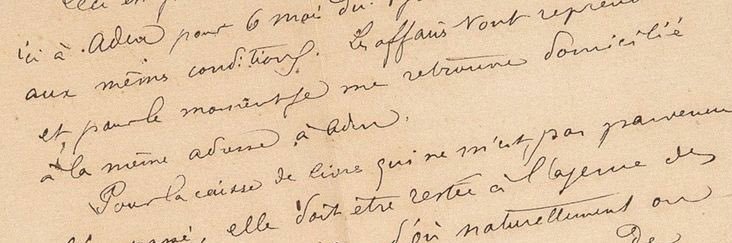 ici à Aden pour 6 mois du
aux mêmes conditions. Les affaires vont reprendre
et pour le moment je me retrouve domicilié
à la même adresse, à Aden.
Pour la caisse de livres qui ne m'est pas parvenue
elle doit être restée à l'agence des
d'où naturellement on
de